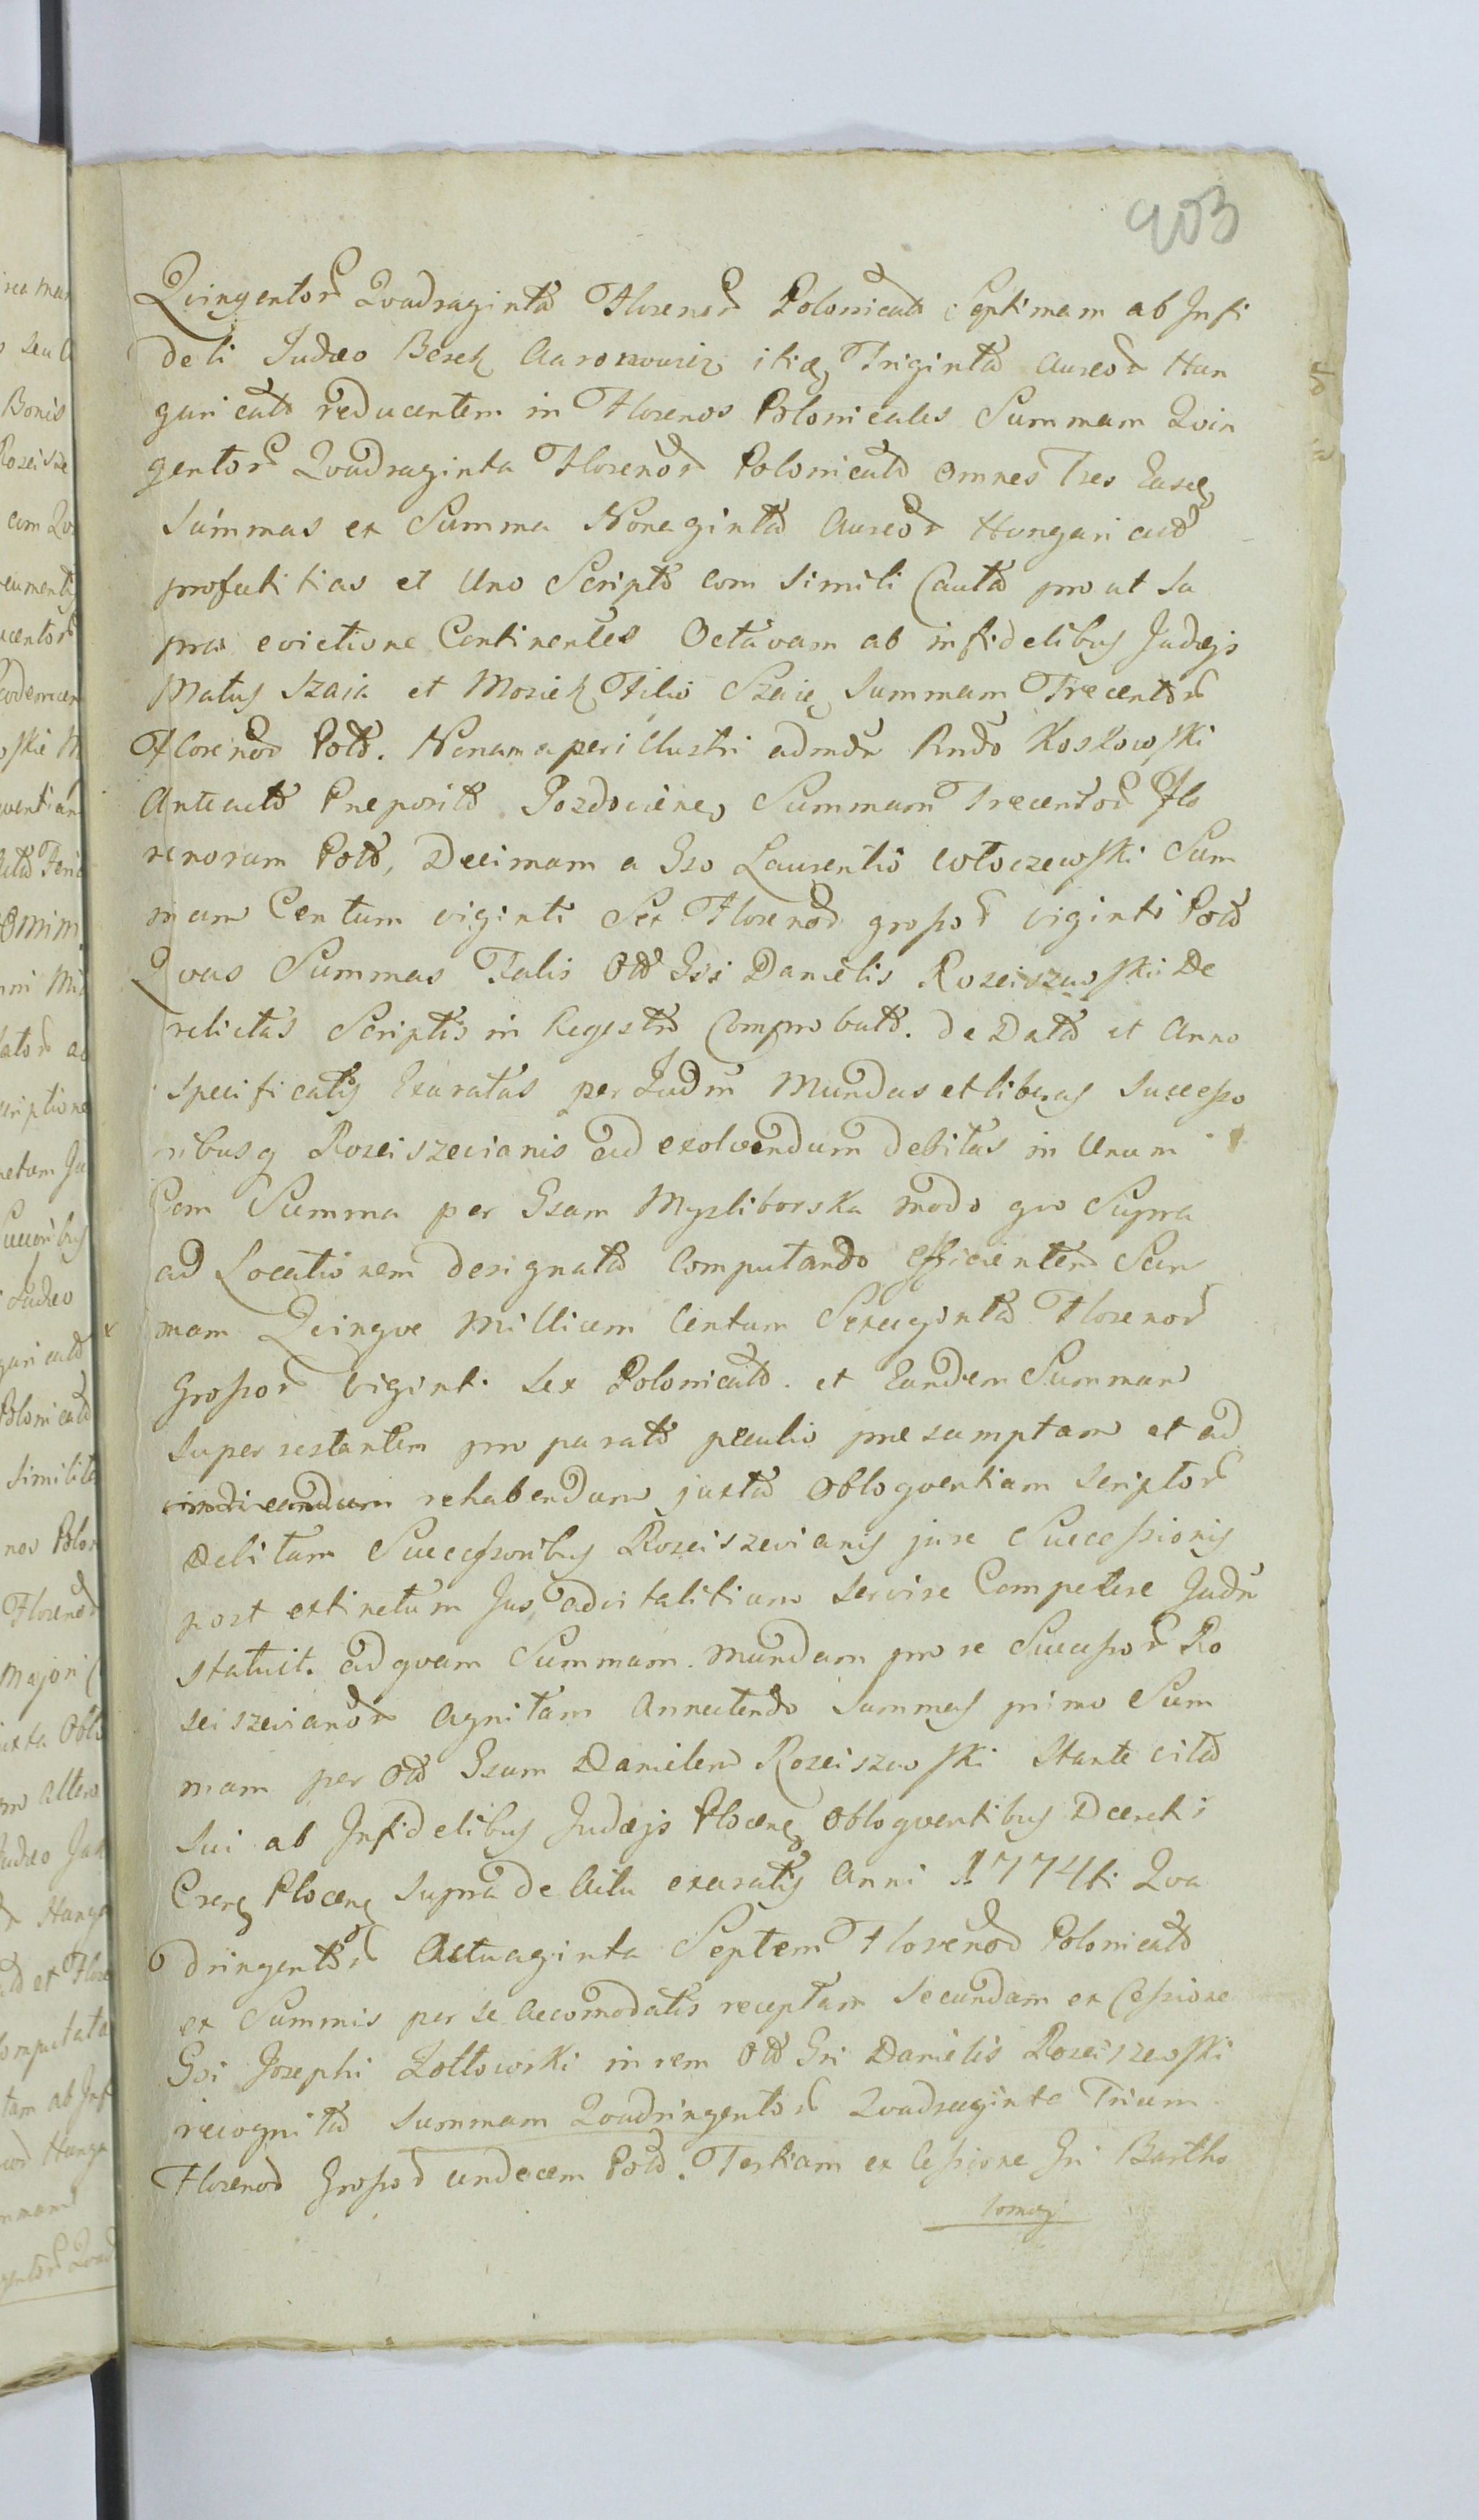 903
Qvingentor Qvadraginta Florenor Polonicalt Septimam ab Infi
deli Judæo Berek Aaronowicz itidq Triginta Aureor Hun
garicalt reducentem in Florenos Polonicales Summam Qvin
gentor Qvadraginta Florenor Polonicalt omnes Tres Easdq
Summas ex Summa Nonaginta Aureor Hungaricalt
profectitias et Uno Scripto com simili Cauta prout Su
pra evictione Continentes Octavam ab infidelibus Judæjs
Matus Szaia et Mosiek Filio Szaie Summam Trecentor
Florenor Polt. Nonam a perillustri admdr Rndo Kosłowski
Anteacto Preposito Pozdocinen Summam Trecentor Flo
renorum Polt, Decimam a Gso Laurentio Włoczewski Sum
mam Centum viginti Sex Florenor grossor viginti Polt
Qvas Summas Talis Olt Gsi Danielis Rozeiszewski De
relictas Scriptis in Regestro Comprobato. de Data et Anno
specificatis Exaratas per Judm Mundas et liberas Successo
ribusq Rozeiszevianis ad exolvendum debitas in Unum
Com Summa per Gsam Mysliborska modo qvo Supra
ad Locationem designata Computando efficientem Sum
mam Qvinqve Millium Centum Sexaginta Florenor
Grossor viginti Sex Polonicalt. et Eandem Summam
superrestantem pro parato peculio presumptam et ad
vindicandum rehabendam juxta Obloqventiam Scriptor
Debitam Successoribus Rozeiszevianis jure Successionis
post extinctum Jus advitalitium servire Competere Judm
statuit. ad qvam Summam mundam pro re Successor Ro
seiszevianor Agnitam Annectendo Summas primo Sum
mam per Olt Gsum Danielem Rozeiszewski Stante vita
sui ab Infidelibus Judæjs Plocens Obloqventibus Decreti
Crens Plocens supra de Actu exaratis Anni 1774ti Qva
dringentor Octuaginta Septem Florenor Polonicalt
ex Summis per se Accomodatis receptam Secundam ex Cessione
Gsi Josephi Zołtowski in rem Olt Gsi Danielis Rozeiszewski
recognita Summam Qvadringentor Qvadraginta Trium
Florenor Grossor undecem Polt. Tertiam ex Cessione Gsi Bartho
lomæj